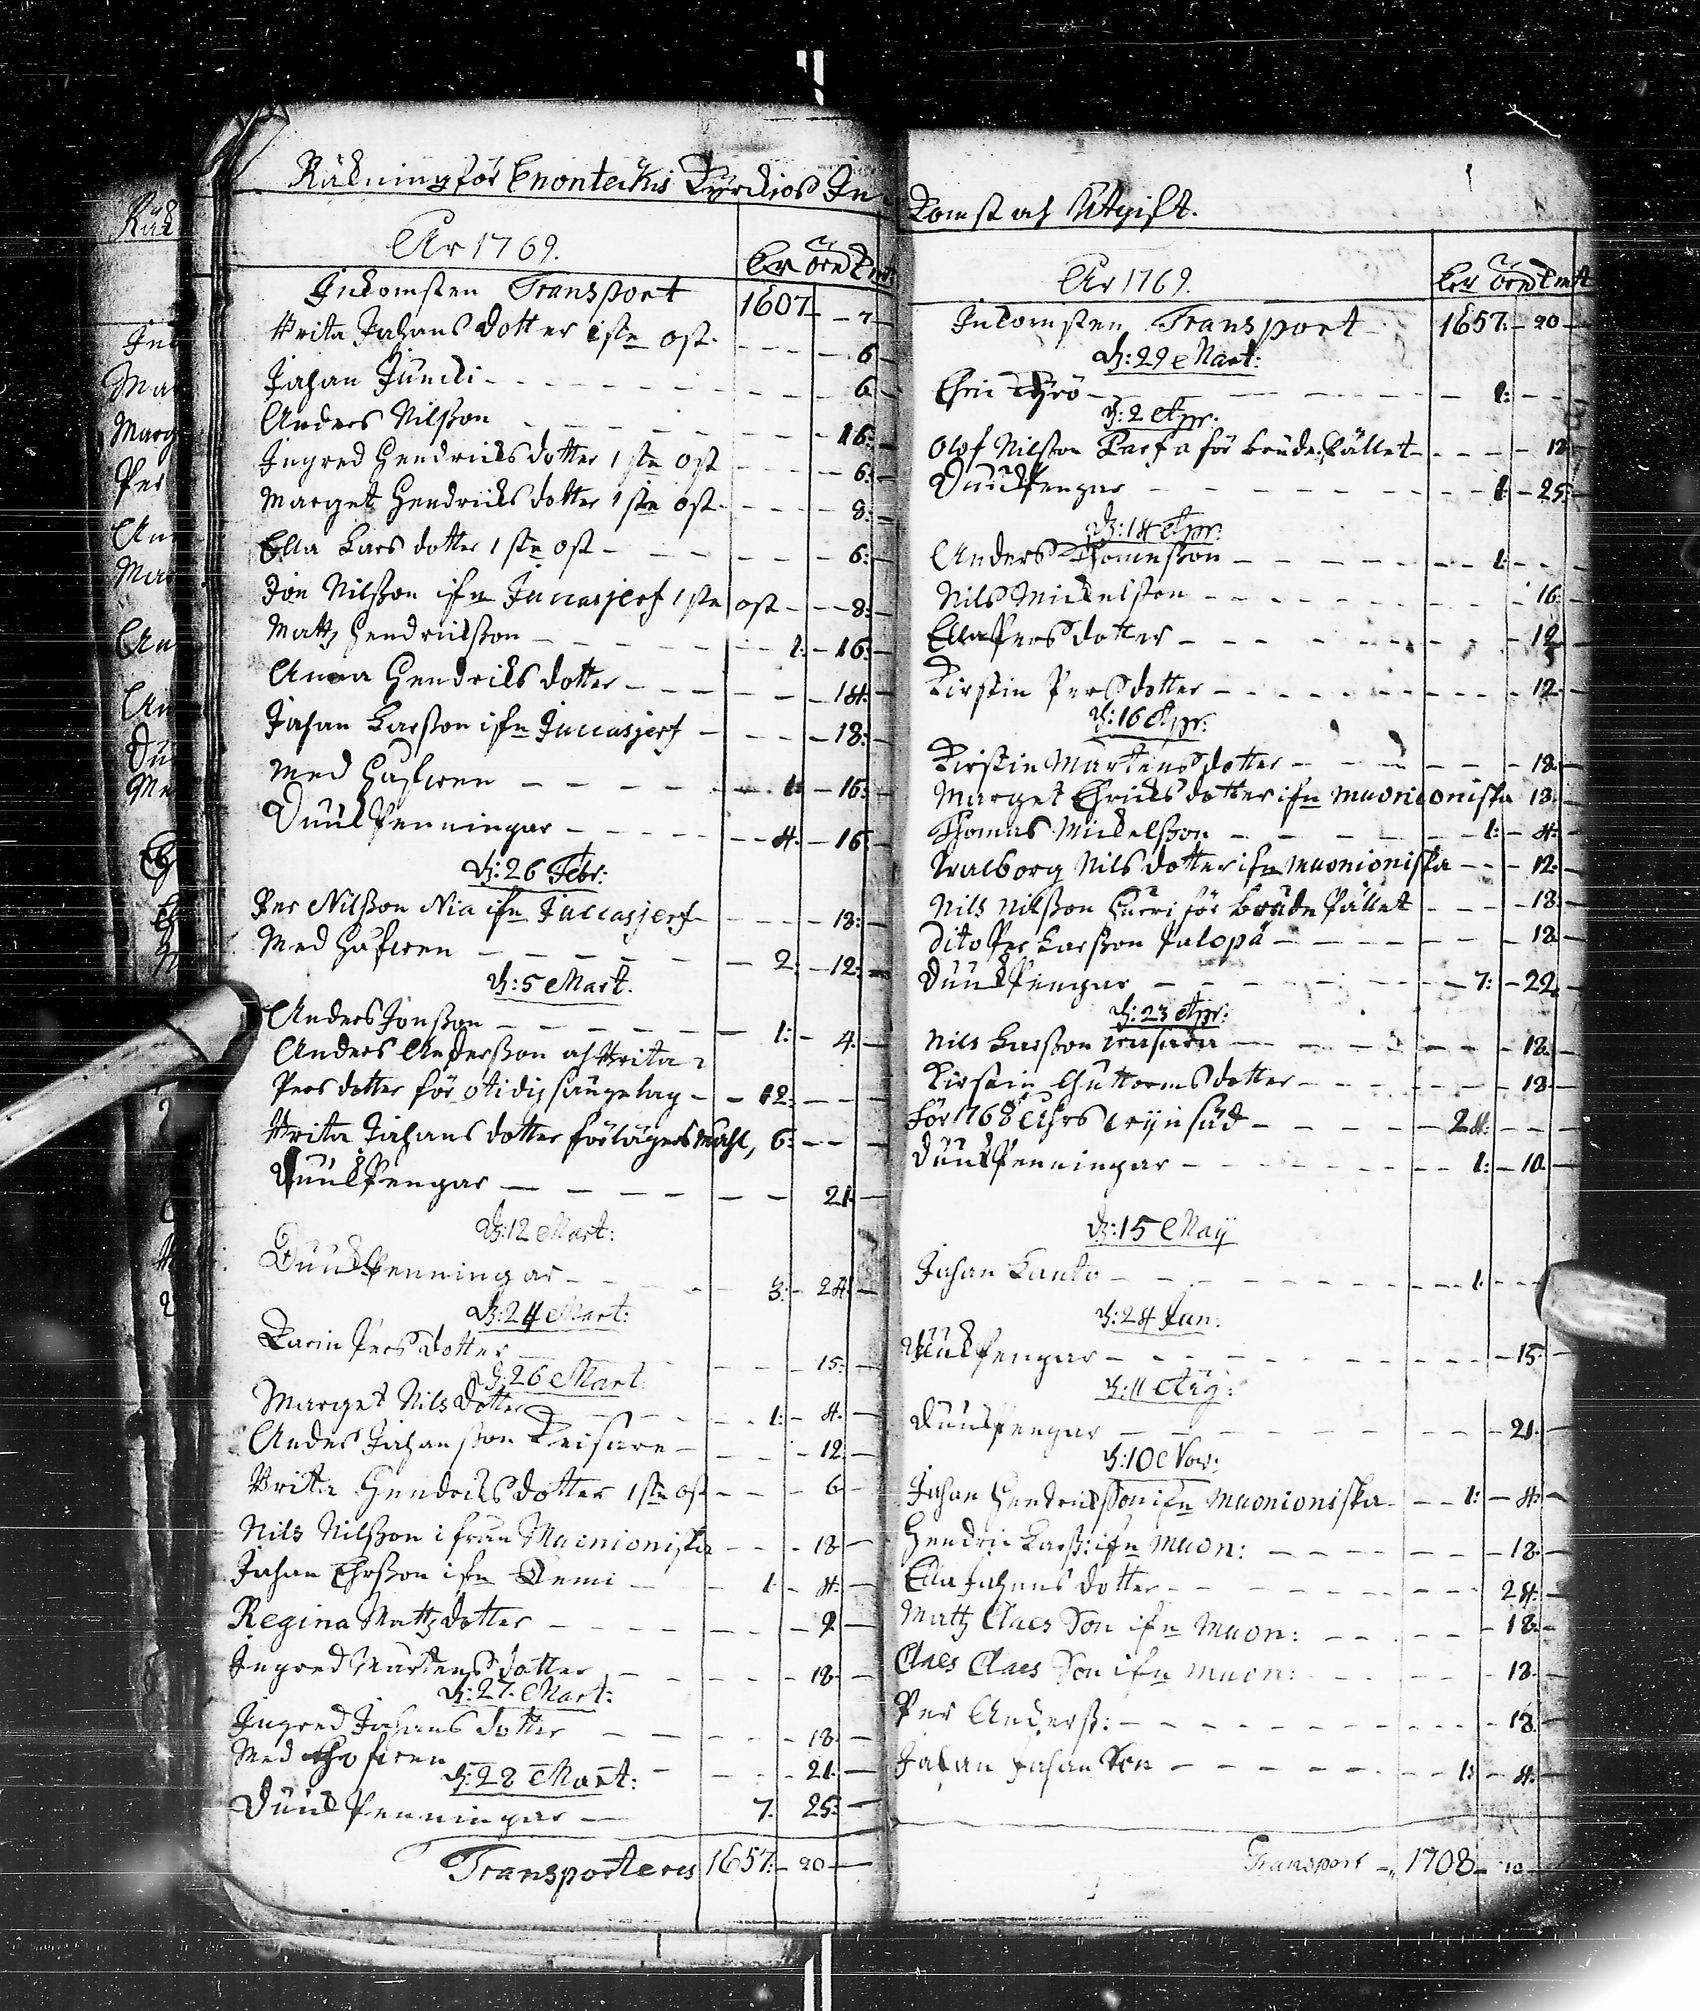 Räkning för Enontekis Kyrckios In-
Åhr 1769. Er öre Kmt
Inkomsten Transport 1607 - 7 -
Brita Johans dotter 1 ste ost. - - - - 6 -
Johan Juncki - - - - - - - 6 -
Anders Nilsson - - - - - 16: -
Ingred Hendricks dotter 1 ste ost - - - - 6: -
Marget Hendricks dotter 1 ste ost - - - - 8: -
Ella Lars dotter 1 ste ost - - - - - 6: -
Jon Nilsson ifrn Juccasjerf 1 ste ost - - - 8: -
Matz Hendricksson - - - - - 1: - 16: -
Anna Hendricks dotter - - - - - 14: -
Johan Larsson ifrn Juccasjerf - - - - 18: -
Med Håfwen - - - - - 1: - 16: -
Duuk Penningar - - - - - 4: - 16
d: 26 Febr:
Per Nilsson Nia ifrn Juccasjerf - - - - 18: -
Med Håfwen - - - - - 2: - 12: -
d: 5 Mart.
Anders Jonsson - - - - - 1: - 4: -
Anders Andersson och Brita
Pers dotter för otidig sängelag - - 12: - - -
Brita Johans dotter för lägersmåhl, 6: - - -
Duuk Pengar - - - - - - 21: -
d: 12 Mart:
Duuk Penningar - - - 3: - 24: -
d: 24 Mart:
Karin Pers dotter - - - - 15: -
d: 26 Mart:
Marget Nils dotter - - - - 1: - 4: -
Anders Johansson Keisare - - - - 12: -
Brita Hendricks dotter 1 ste ost - - - 6 -
Nils Nilsson ifrån Muonioniska - - - 18 -
Johan Ehrsson ifrn Kemi - - 1 - 4: -
Regina Matz dotter - - - - - 9 -
Ingred Mårtens dotter - - - - 18 -
d: 27. Mart:
Ingred Johans dotter - - - - 18 -
Med Håfwen - - - - 21: -
d: 28 Mart:
Duuk Penningar - 7. 25: -
Transporteres 1657: - 20 -
komst och Utgift.
Åhr 1769. Er öre Kmt
Inkomsten Transport 1657: - 20 -
d: 29 Mart:
Ehric Thyrö - - - - - 1: - - -
d: 2 Apr:
Olof Nilsson Karfa för brude Pället - - - - 18
Duuk Pengar - - - - - 1: - 25: -
d: 14 Apr:
Anders Thomesson - - - - - 1: - - -
Nils Mickelsson - - - - - 16: -
Ella Pers dotter - - - - - 12 -
Kirstin Pers dotter - - - - - 12 -
d: 16 Apr:
Kirstin Mårtens dotter - - - - - 18: -
Marget Ehricks dotter ifrn Muonioniska 18: -
Thomas Mickelsson - - - - - 1: - 4: -
Walborg Nils dotter ifrn Muonioniska - - - 12: -
Nils Nilsson Hurri för brude Pället - - - - 18: -
Dito Per Larsson Palopä - - - - - 18 -
Duuk Pengar - - - - - 7: - 22. -
d: 23 Apr:
Nils Larsson - - - - - 18 -
Kirstin Guttormsdotter - - - - - 18 -
För 1768 Åhrs - - - - 24: - - -
Duuk Penningar - - - - - 1: - 10 -
d: 15 May
Johan Lanto - - - - - 1 - - -
d: 24 Jun:
Duuk Pengar - - - - - 15: -
d: 11 Aug:
Duuk Pengar - - - - - 21. -
d: 10 Nov:
Johan Hendricksson ifrn Muonioniska - - 1: - 4: -
Hendric Larss: ifrn Muon: - - - - - 18: -
Ella Johans dotter - - - - - 24: -
Matz Claes Son ifrn Muon: - - - - 18: -
Claes Claes Son ifrn Muon: - - - - 18: -
Per Anderss: - - - - - 18: -
Johan Johan Son - - - - - 1: - 4: -
Transport - 1708 - 10 -